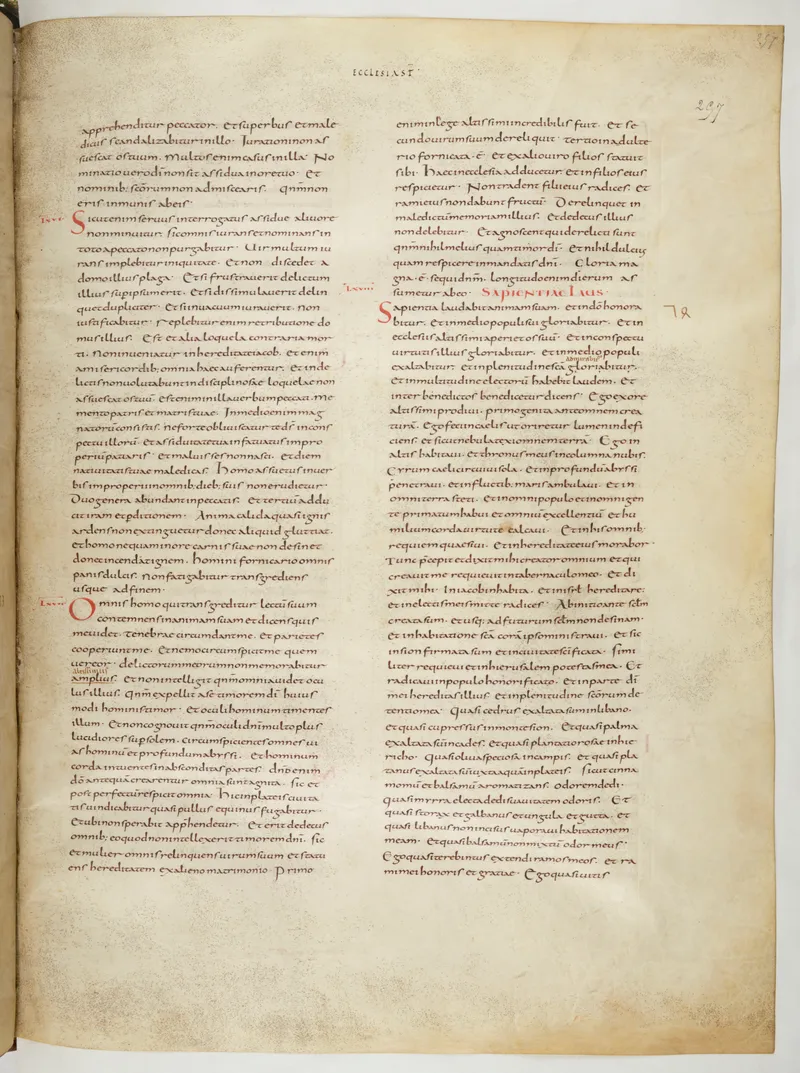 ECCLESIAST̄
297
apprehenditur peccator. Et superbus et male
dicus scandalizabitur in illo. Iurationi non as
suescat os tuum. Multos enim casus in illa. No
minatio uero dī non sit assidua in ore tuo. Et
nominib; scōrum non admiscearis. qnm̄ non
eris inmunis ab eis.
Sicut enim seruus interrogatus assidue a liuore
non minuitur. sic omnis iurans et nominans in
toto a peccato non purgabitur. Uir multum iu
rans implebitur iniquitate. Et non discedet a
domo illius plaga. Et si frustrauerit delictum
illius sup ipsum erit. Et si dissimulauerit delin
quet dupliciter. Et si in uacuum iurauerit. non
iustificabitur. replebitur enim retributione do
mus illius. Est et alia loquela contraria mor
ti. non inueniatur in hereditate iacob. Et enim
a misericordib; omnia haec auferentur. Et in de
lictis non uolutabunt indisciplinosae loquelae non
assuescat os tuū. Est enim in illa uerbum peccati. me
mento patris et matris tuae. In medio enim mag
natorū consistis. ne forte obliuiscatur te dſ̄ in cons
pectu illorū. Et assiduitate tua infatuatus impro
periū patiaris. Et maluisses non nasci. Et diem
natiuitatis tuae maledicas. Homo assuetus in uer
bis improperii in omnib; dieb; suis non erudietur.
Duo genera abundant in peccatis. Et tertiū addu
cit iram et pditionem. Anima calida quasi ignis
ardens non extinguetur donec aliquid gluttiat.
et homo nequam in ore carnis suae non desinet
donec incendat ignem. homini fornicario omnis
panis dulcis. non fatigabitur transgrediens
usque ad finem.
Omnis homo qui transgreditur lectū suum
contemnens in animam suam et dicens quis
me uidet. tenebrae circumdant me. Et parietes
cooperiunt me. Et nemo circumspicit me quem
uereor. delictorum meorum non memorabitur
altissimus
amplius. Et non intellegit qnm̄ omnia uidet ocu
lus illius. qnm̄ expellit a se timorem dī huius
modi hominis timor. Et oculi hominum timentes
illum. Et non cognouit qnm̄ oculi dnī multo plus
lucidiores sup solem. circumspicientes omnes ui
as hominū et profundum abyssi. Et hominum
corda intuentes in absconditas partes. dnō enim
dō antequā crearentur omnia sunt agnita. sic et
post perfectū respicit omnia. hic in plateis ciuita
tis uindicabitur quasi pullus equinus fugabitur.
Et ubi non sperabit apphendetur. Et erit dedecus
omnib; eo quod non intellexerit timorem dnī. sic
et mulier omnis relinquens uirum suum et statu
ens hereditatem ex alieno matrimonio. Primo
enim in lege altissimi incredibilis fuit. Et se
cundo uirum suum dereliquit. tertio in adulte
rio fornicata .ē. Et ex alio uiro filios statuit
sibi. Haec in ecclesiā adducetur. Et in filios eius
respicietur. Non tradent filii eius radices. Et
rami eius non dabunt fructū. Derelinquet in
maledictū memoriam illius. Et dedecus illius
non delebitur. Et agnoscent qui derelicti sunt
qnm̄ nihil melius quam timor dī. Et nihil dulcius
quam respicere in mandatis dnī. Gloria ma
gna .ē. sequi dnm̄. longitudo enim dierum as
sumetur ab eo. SAPIENTIAE LAUS.
Sapientia laudabit animam suam. Et in dō honora
bitur. Et in medio populi sui gloriabitur. Et in
ecclesiis altissimi aperiet os suū. Et in conspectu
uirtutis illius gloriabitur. Et in medio populi
exaltabitur. Et in plenitudine scā gloriabitur.
Et in multitudine electorū habebit laudem. Et
inter benedictos benedicetur dicens. Ego ex ore
altissimi prodiui. primogenita ante omnem crea
turā. Ego feci in caelis ut oriretur lumen indefi
ciens. et sicut nebula texi omnem terrā. Ego in
altis habitaui. Et thronus meus in columna nubis.
Gyrum caeli circuiui sola. Et in profundū abyssi
penetraui. et in fluctib; maris ambulaui. Et in
omni terra steti. Et in omni populo et in omni gen
te primatum habui. Et omniū excellentiū et hu
milium corda uirtute calcaui. Et in his omnib;
requiem quaesiui. Et in hereditate eius morabor.
Tunc pcepit et dixit mihi creator omnium et qui
creauit me requieuit in tabernaculo meo. Et di
xit mihi. In iacob inhabita. Et in isrl̄ hereditare.
et in electis meis mitte radices. Ab initio ante sclm̄
creata sum. Et usq; ad futurum sclm̄ non desinam.
Et in habitatione scā corā ipso ministraui. Et sic
in sion firmata sum et in ciuitate scīficata. simi
liter requieui et in hierusalem potestas mea. Et
radicaui in populo honorificato. Et in parte dī
mei hereditas illius. Et in plenitudine scōrum de
tentio mea. Quasi cedrus exaltata sum in libano.
Et quasi cupressus in monte sion. Et quasi palma
exaltata sū in cades. Et quasi plantatio rosae in hie
richo. Quasi oliua speciosa in campis. Et quasi pla
tanus exaltata sū iuxta aquā in plateis. sicut cinna
momū et balsamū aromatizans odorem dedi.
Quasi myrra electa dedi suauitatem odoris. Et
quasi storax et galbanus et ungula et gutta. et
quasi libanus non incisus uaporaui habitationem
meam. Et quasi balsamū non mixtū odor meus.
Ego quasi terebintus extendi ramos meos. et ra
mi mei honoris et gratiae. Ego quasi uitis